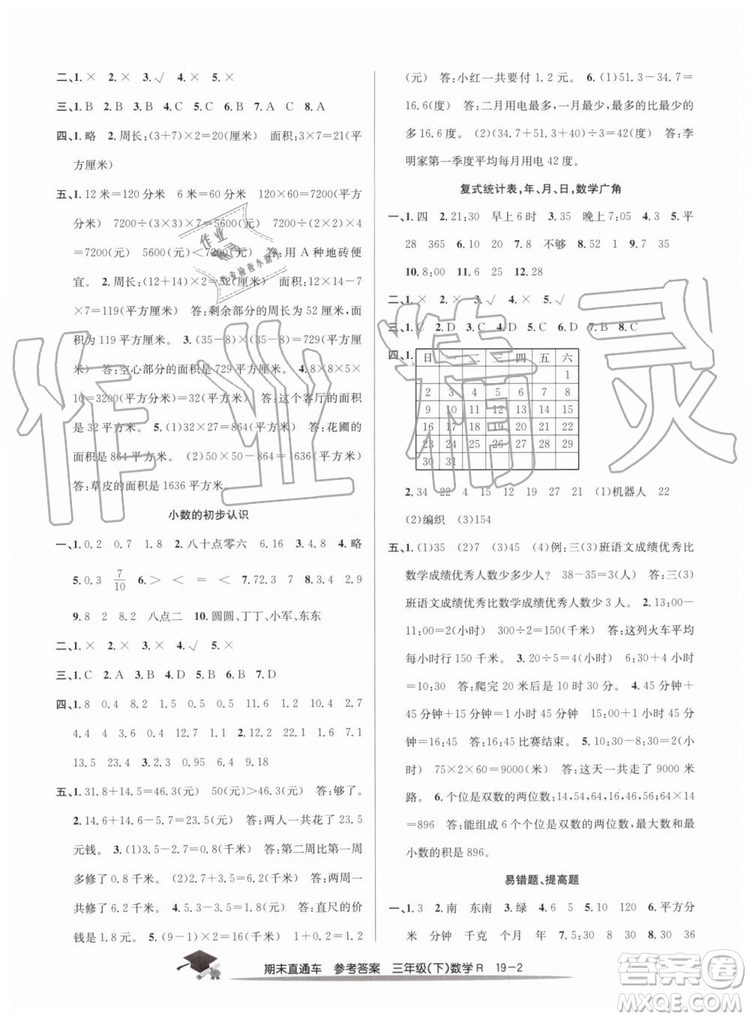 二、1.× 2.× 3.√ 4.× 5.×
三、1.B 2.B 3.B 4.C 5.C 6.B 7.C 8.A
四、1.略 2.周长:(3+7)×2=20(厘米) 面积:3×7=21(平
方厘米)
五、1.12米=120分米 6米=60分米 120×60=7200(平方
分米) 7200÷(3×3)×7=5600(元) 7200÷(2×2)×4
=7200(元) 5600(元)<7200(元) 答:用A种地砖便
宜。 2.(12+14)×2=52(厘米) 12×14-7×
7=119(平方厘米) 答:剩余部分的周长为52厘米,面
积为119平方厘米。 3.(35-8)×8×4=864(平方厘
米) 答:空心部分的面积是864平方厘米。 4.8×8×5×
10=3200(平方分米)=32(平方米) 答:这个客厅的面
积是32平方米。 5.(1)32×27=864(平方米) 答:花圃的
面积是864平方米。 (2)50×50-864=1636(平方米)
答:草皮的面积是1636平方米。
小数的初步认识
一、1.0.2 0.7 0.9 2.八十点零六 6.16 3.8.8 4.略
5.0.3 7/10 6.> < = < 7.72.3 8.1.4 1.9
9.8 2 8.2 八点二 10.圆圆、丁丁、小军、东东
二、1.× 2.× 3.× 4.√ 5.×
三、1.C 2.A 3.B 4.B 5.A 6.B 7.D
四、1.8 0.4 2.4 11.4 0.6 11.2 0.9 15.2 0.6
0.2 0.9 0.5 2.6.7 2.7 12.2 24.1 11.2 7.1
13.5 23.4 12.8
五、1.31.8+14.5=46.3(元) 50(元)>46.3(元) 答:够了。
2.14.5+9=23.5(元) 答:两人一共花了23.5
元钱。 3.(1)3.5-2.7=0.8(千米) 答:第二周比第一周
多修了0.8千米。 (2)2.7+3.5=6.2(千米) 答:两周一共
修了6.2千米。 4.3.5-2.7=0.8(元) 答:直尺的价
钱是0.8元。 5.(9-1)×2=16(元) 16+1.2=17.2
(元) 答:小红一共要付1.2元。 6.(1)51.3-34.7=
16.6(度) 答:二月用电最多,一月最少,最多的比最少的
多16.6度。 (2)(34.7+51.3+40)÷3=42(度) 答:李
明家第一季度平均每月用电42度。
复式统计表,年、月、日,数学广角
一、1.四 2.21:30 早上6时 3.35 晚上7:05 4.3 5.平
28 365 6.0 够 7.11 45 8.6 9.6
10.8:00 11.6 12.5 13.2
二、1.× 2.√ 3.√ 4.× 5.×
三、1.C 2.D 3.C 4.D 5.C 6.D 7.B 8.C
四、1.
日 一 二 三 四 五 六
1
2 3 4 5 6 7 8
9 10 11 12 13 14 15
16 17 18 19 20 21 22
23 24 25 26 27 28 29
30 31
2.34 22 4 35 22 15 22 (1)机器人 22
(2)编织 (3)154
五、1.(1)45 (2)7 (3)45 (4)例:三(3)班语文成绩优秀比
数学成绩优秀人数少多少人? 38-35=3(人) 答:三(3)
班语文成绩优秀人数比数学少3人。
答:这列火车平均
每小时行150千米。 3.20÷5=4(小时) 6:30+4(小时)
=10:30 答:爬完20千米是10:30。 4.45分钟+45分钟+
15分钟=1小时45分钟 15:00+1小时
45分钟=16:45 答:16:45比赛结束。
75×2×60=9000(米) 答:两分走9000米
路。 6.个位是双数的两位数:14,54,16,46,64,56 14×64
=896 答:能组成6个个位是双数的两位数,最大数和最
小数的积是896。
易错题、提高题
一、1.北 2.南 东南 3.绿 4.10 5.30 6.平方分
米 分钟 千克 个月 年 7.30 8.30 9.836
期末直通车 参考答案 三年级(下)数学R 19-2
作业精灵
答案圈